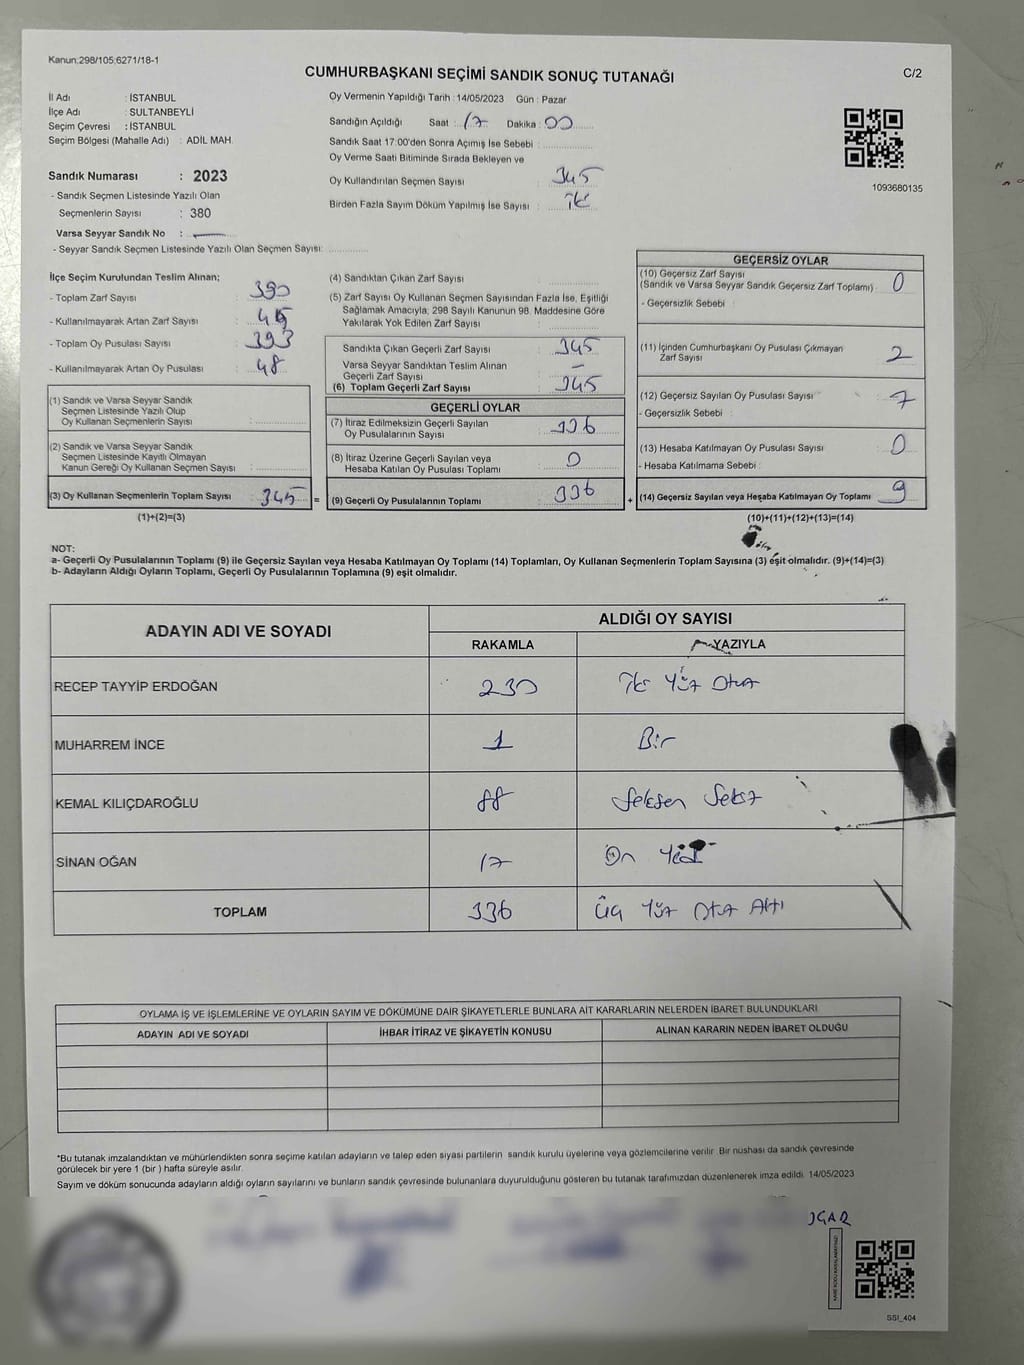 Kanun:298/105;6271/18-1
CUMHURBAŞKANI SEÇİMİ SANDIK SONUÇ TUTANAĞI
C/2
İl Adı : İSTANBUL
İlçe Adı : SULTANBEYLİ
Seçim Çevresi : İSTANBUL
Seçim Bölgesi (Mahalle Adı) : ADİL MAH.
Oy Vermenin Yapıldığı Tarih : 14/05/2023 Gün : Pazar
Sandığın Açıldığı Saat : 17 Dakika : 00
Sandık Saat 17:00'den Sonra Açımış İse Sebebi :
Oy Verme Saati Bitiminde Sırada Bekleyen ve
Oy Kullandırılan Seçmen Sayısı : 345
Birden Fazla Sayım Döküm Yapılmış İse Sayısı : iki
1093680135
Sandık Numarası : 2023
- Sandık Seçmen Listesinde Yazılı Olan
Seçmenlerin Sayısı : 380
Varsa Seyyar Sandık No : —
- Seyyar Sandık Seçmen Listesinde Yazılı Olan Seçmen Sayısı:
İlçe Seçim Kurulundan Teslim Alınan;
- Toplam Zarf Sayısı : 390
- Kullanılmayarak Artan Zarf Sayısı :
- Toplam Oy Pusulası Sayısı : 393
- Kullanılmayarak Artan Oy Pusulası : 48
(1) Sandık ve Varsa Seyyar Sandık
Seçmen Listesinde Yazılı Olup
Oy Kullanan Seçmenlerin Sayısı :
(2) Sandık ve Varsa Seyyar Sandık
Seçmen Listesinde Kayıtlı Olmayan
Kanun Gereği Oy Kullanan Seçmen Sayısı :
(3) Oy Kullanan Seçmenlerin Toplam Sayısı : 345 =
(1)+(2)=(3)
(4) Sandıktan Çıkan Zarf Sayısı :
(5) Zarf Sayısı Oy Kullanan Seçmen Sayısından Fazla İse, Eşitliği
Sağlamak Amacıyla; 298 Sayılı Kanunun 98. Maddesine Göre
Yakılarak Yok Edilen Zarf Sayısı :
Sandıkta Çıkan Geçerli Zarf Sayısı : 345
Varsa Seyyar Sandıktan Teslim Alınan
Geçerli Zarf Sayısı : —
(6) Toplam Geçerli Zarf Sayısı : 345
GEÇERLİ OYLAR
(7) İtiraz Edilmeksizin Geçerli Sayılan
Oy Pusulalarının Sayısı : 336
(8) İtiraz Üzerine Geçerli Sayılan veya
Hesaba Katılan Oy Pusulası Toplamı : 0
(9) Geçerli Oy Pusulalarının Toplamı : 336 +
GEÇERSİZ OYLAR
(10) Geçersiz Zarf Sayısı
(Sandık ve Varsa Seyyar Sandık Geçersiz Zarf Toplamı) : 0
- Geçersizlik Sebebi :
(11) İçinden Cumhurbaşkanı Oy Pusulası Çıkmayan
Zarf Sayısı : 2
(12) Geçersiz Sayılan Oy Pusulası Sayısı : 7
- Geçersizlik Sebebi :
(13) Hesaba Katılmayan Oy Pusulası Sayısı : 0
- Hesaba Katılmama Sebebi :
(14) Geçersiz Sayılan veya Hesaba Katılmayan Oy Toplamı : 9
(10)+(11)+(12)+(13)=(14)
NOT:
a- Geçerli Oy Pusulalarının Toplamı (9) ile Geçersiz Sayılan veya Hesaba Katılmayan Oy Toplamı (14) Toplamları, Oy Kullanan Seçmenlerin Toplam Sayısına (3) eşit olmalıdır. (9)+(14)=(3)
b- Adayların Aldığı Oyların Toplamı, Geçerli Oy Pusulalarının Toplamına (9) eşit olmalıdır.
ADAYIN ADI VE SOYADI
ALDIĞI OY SAYISI
RAKAMLA
YAZIYLA
RECEP TAYYİP ERDOĞAN 230 iki Yüz Otuz
MUHARREM İNCE 1 Bir
KEMAL KILIÇDAROĞLU 88 Seksen Sekiz
SİNAN OĞAN 17 On Yedi
TOPLAM 336 Üç Yüz Otuz Altı
OYLAMA İŞ VE İŞLEMLERİNE VE OYLARIN SAYIM VE DÖKÜMÜNE DAİR ŞİKAYETLERLE BUNLARA AİT KARARLARIN NELERDEN İBARET BULUNDUKLARI
ADAYIN ADI VE SOYADI
İHBAR İTİRAZ VE ŞİKAYETİN KONUSU
ALINAN KARARIN NEDEN İBARET OLDUĞU
*Bu tutanak imzalandıktan ve mühürlendikten sonra seçime katılan adayların ve talep eden siyasi partilerin sandık kurulu üyelerine veya gözlemcilerine verilir. Bir nüshası da sandık çevresinde
görülecek bir yere 1 (bir ) hafta süreyle asılır.
Sayım ve döküm sonucunda adayların aldığı oyların sayılarını ve bunların sandık çevresinde bulunanlara duyurulduğunu gösteren bu tutanak tarafımızdan düzenlenerek imza edildi. 14/05/2023
SSİ_404